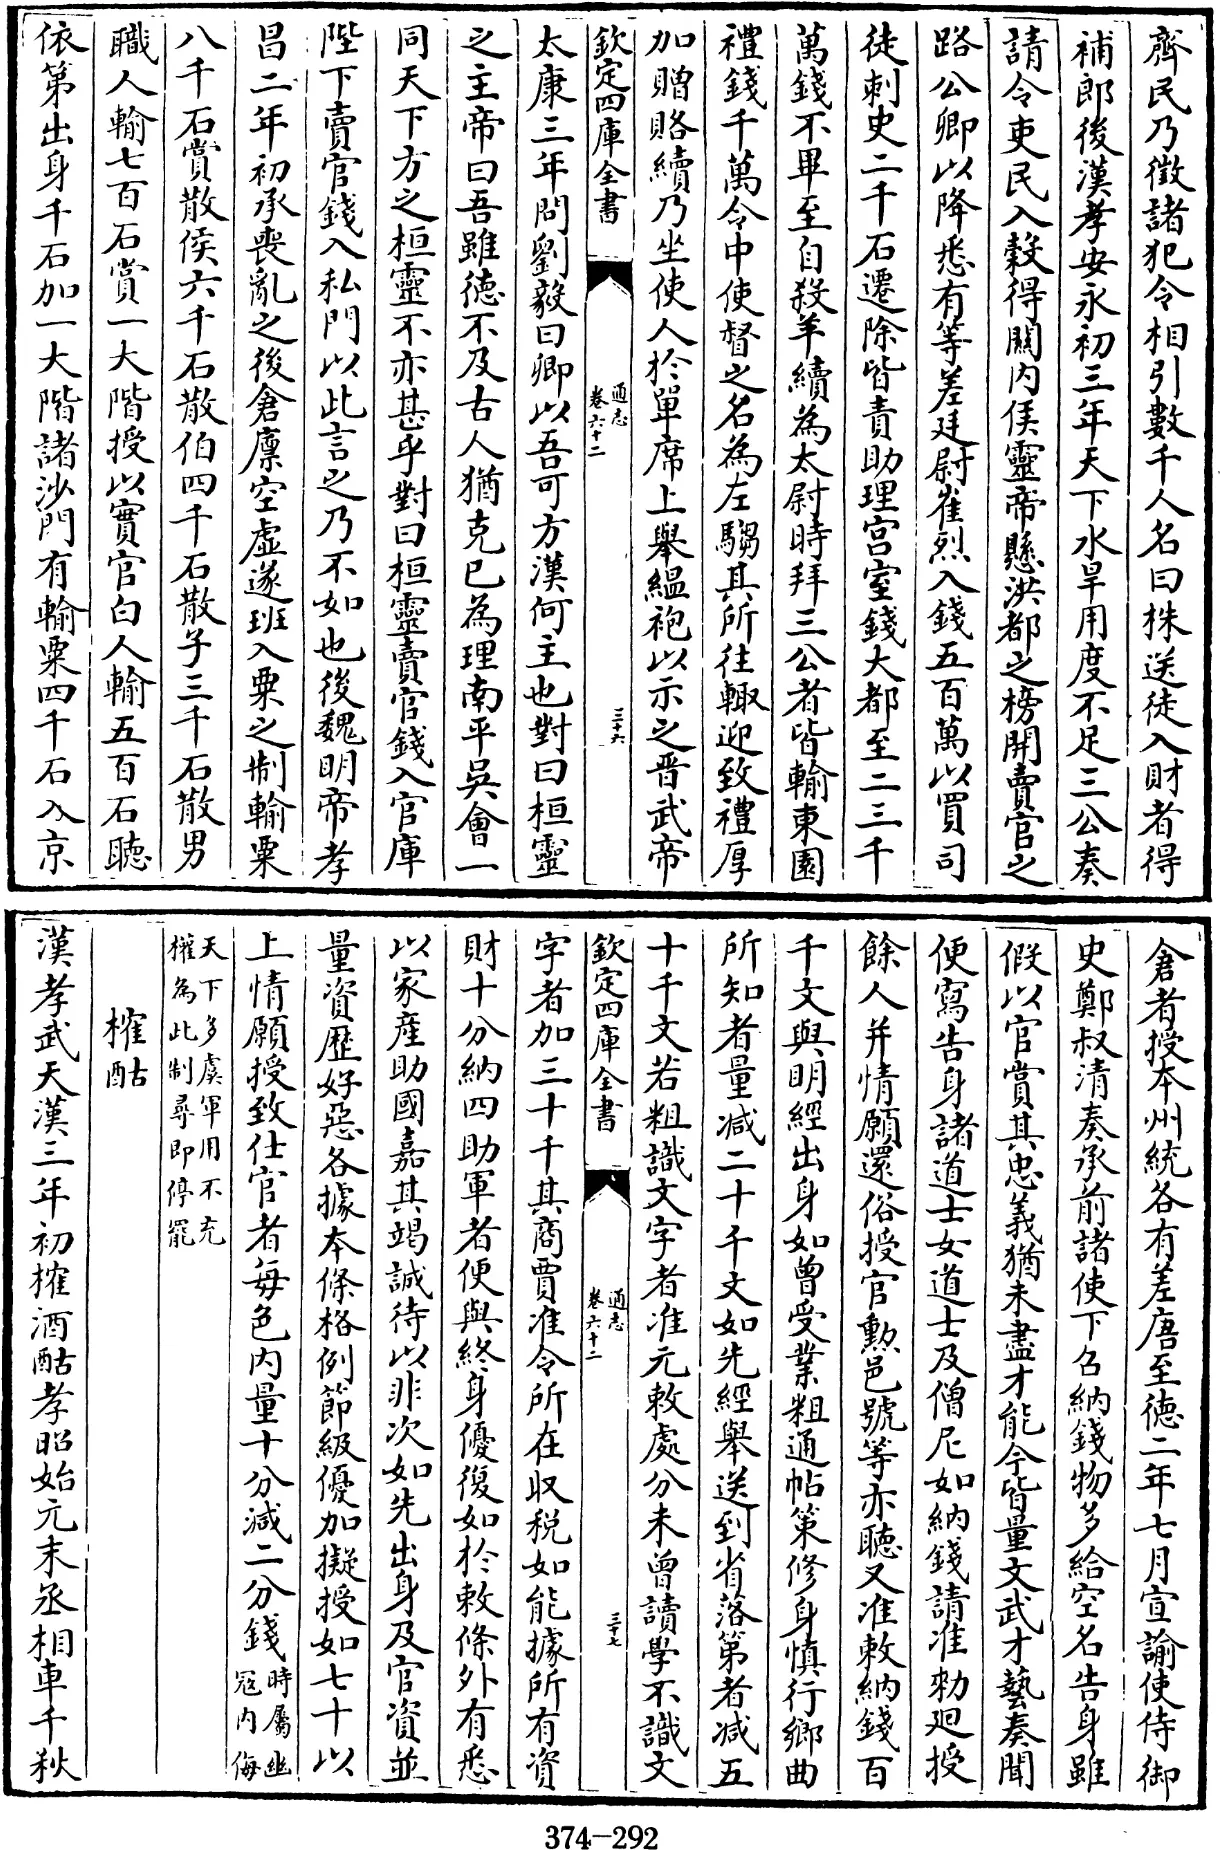 齊民乃徵諸犯令相引數千人名曰株送徒入財者得
補郎後漢孝安永初三年天下水旱用度不足三公奏
請令吏民入穀得關內侯靈帝懸洪都之榜開賣官之
路公卿以降悉有等差廷尉崔烈入錢五百萬以買司
徒刺史二千石遷除皆責助理宫室錢大都至二三千
萬錢不畢至自殺羊續為太尉時拜三公者皆輸東園
禮錢千萬令中使督之名為左騶其所往輙迎致禮厚
加贈賂續乃坐使人於單席上舉緼袍以示之晋武帝
欽定四庫全書
通志
卷六十二
三十六
太康三年問劉毅曰卿以吾可方漢何主也對曰桓靈
之主帝曰吾雖德不及古人猶克已為理南平吳會一
同天下方之桓靈不亦甚乎對曰桓靈賣官錢入官庫
陛下賣官錢入私門以此言之乃不如也後魏明帝孝
昌二年初承喪亂之後倉廪空虛遂班入粟之制輸粟
八千石賞散侯六千石散伯四千石散子三千石散男
職人輸七百石賞一大階授以實官白人輸五百石聽
依第出身千石加一大階諸沙門有輸粟四千石入京
倉者授本州統各有差唐至德二年七月宣諭使侍御
史鄭叔清奏承前諸使下召納錢物多給空名告身雖
假以官賞其忠義猶未盡才能今皆量文武才藝奏聞
便寫告身諸道士女道士及僧尼如納錢請准勅廻授
餘人并情願還俗授官勲邑號等亦聽又准敕納錢百
千文與明經出身如曾受業粗通帖策修身慎行鄉曲
所知者量减二十千文如先經舉送到省落第者减五
十千文若粗識文字者准元敕處分未曾讀學不識文
欽定四庫全書
通志
卷六十二
三十七
字者加三十千其商賈准令所在収税如能據所有資
財十分納四助軍者便與終身優復如於敕條外有悉
以家産助國嘉其竭誠待以非次如先出身及官資並
量資歴好惡各據本條格例節級優加擬授如七十以
上情願授致仕官者每色内量十分减二分錢時屬幽
寇内侮
天下多虞軍用不充
權為此制尋即停罷
榷酤
漢孝武天漢三年初榷酒酤孝昭始元末丞相車千秋
374-292